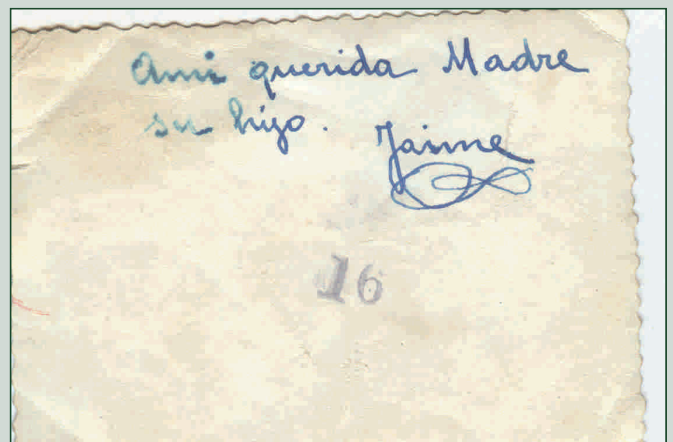 Ami querida Madre
su hijo. Jaime
16